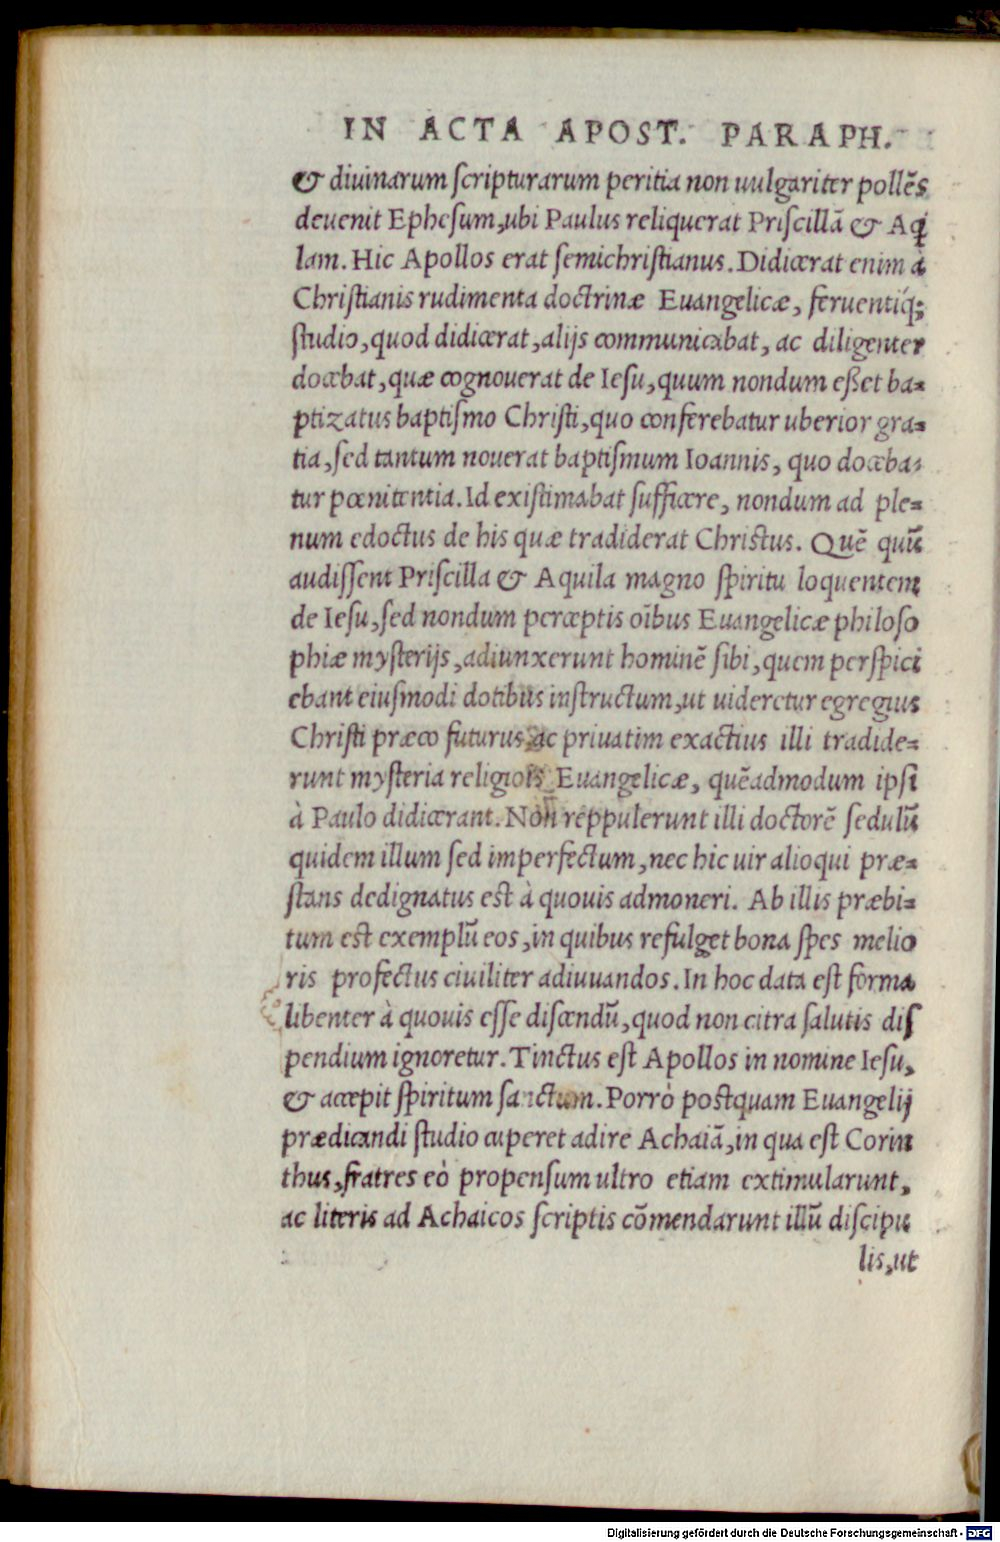 IN ACTA APOST. PARAPH.
& diuinarum ſcripturarum peritia non uulgariter pollẽs
deuenit Epheſum,ubi Paulus reliquerat Priſcillã & Aq́
lam. Hic Apollos erat ſemichriſtianus. Didicerat enim à
Chriſtianis rudimenta doctrinæ Euangelicæ, feruentiq́;
ſtudio,quod didicerat,alijs communicabat, ac diligenter
docebat,quæ cognouerat de Ieſu,quum nondum eßet ba=
ptizatus baptiſmo Chriſti,quo conferebatur uberior gra=
tia,ſed tantum nouerat baptiſmum Ioannis, quo doceba=
tur pœnitentia. Id exiſtimabat ſufficere, nondum ad ple=
num edoctus de his quæ tradiderat Chriſtus. Quẽ quũ
audiſſent Priſcilla & Aquila magno ſpiritu loquentem
de Ieſu,ſed nondum perceptis oĩbus Euangelicæ philoſo
phiæ myſterijs,adiunxerunt hominẽ ſibi,quem perſpici
ebant eiuſmodi dotibus inſtructum,ut uideretur egregius
Chriſti præco futurus,ac priuatim exactius illi tradide=
runt myſteria religiõis Euangelicæ, quẽadmodum ipſi
à Paulo didicerant. Non reppulerunt illi doctorẽ ſedulũ
quidem illum ſed imperfectum,nec hic uir alioqui præ=
ſtans dedignatus eſt à quouis admoneri. Ab illis præbi=
tum eſt exemplũ eos,in quibus refulget bona ſpes melio
ris profectus ciuiliter adiuuandos. In hoc data eſt forma
libenter à quouis eſſe diſcendũ,quod non citra ſalutis diſ
pendium ignoretur. Tinctus eſt Apollos in nomine Ieſu,
& accepit ſpiritum ſanctum. Porrò poſtquam Euangelij
prædicandi ſtudio cuperet adire Achaiã,in qua eſt Corin
thus,fratres eò propenſum ultro etiam extimularunt,
ac literis ad Achaicos ſcriptis cõmendarunt illũ diſcipu
lis,ut
Digitalisierung gefördert durch die Deutsche Forschungsgemeinschaft - DFG